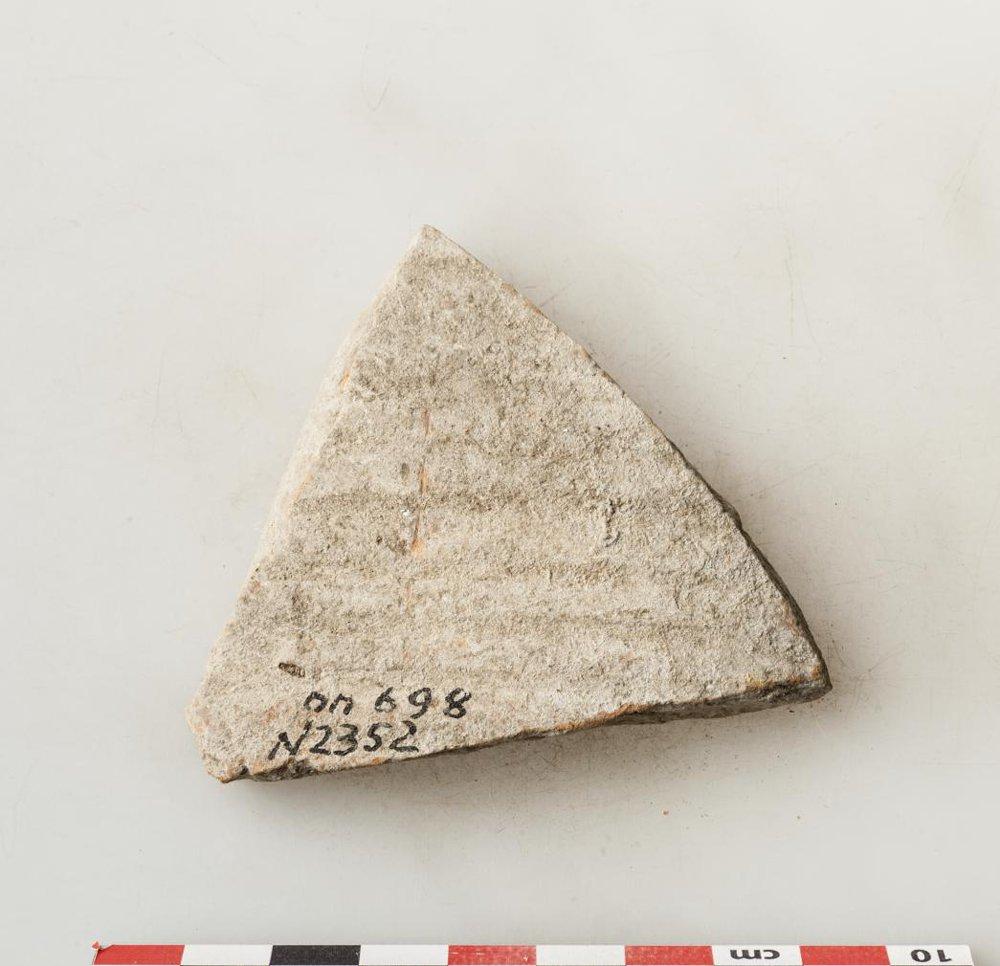 пп 698
N2352
cm 10